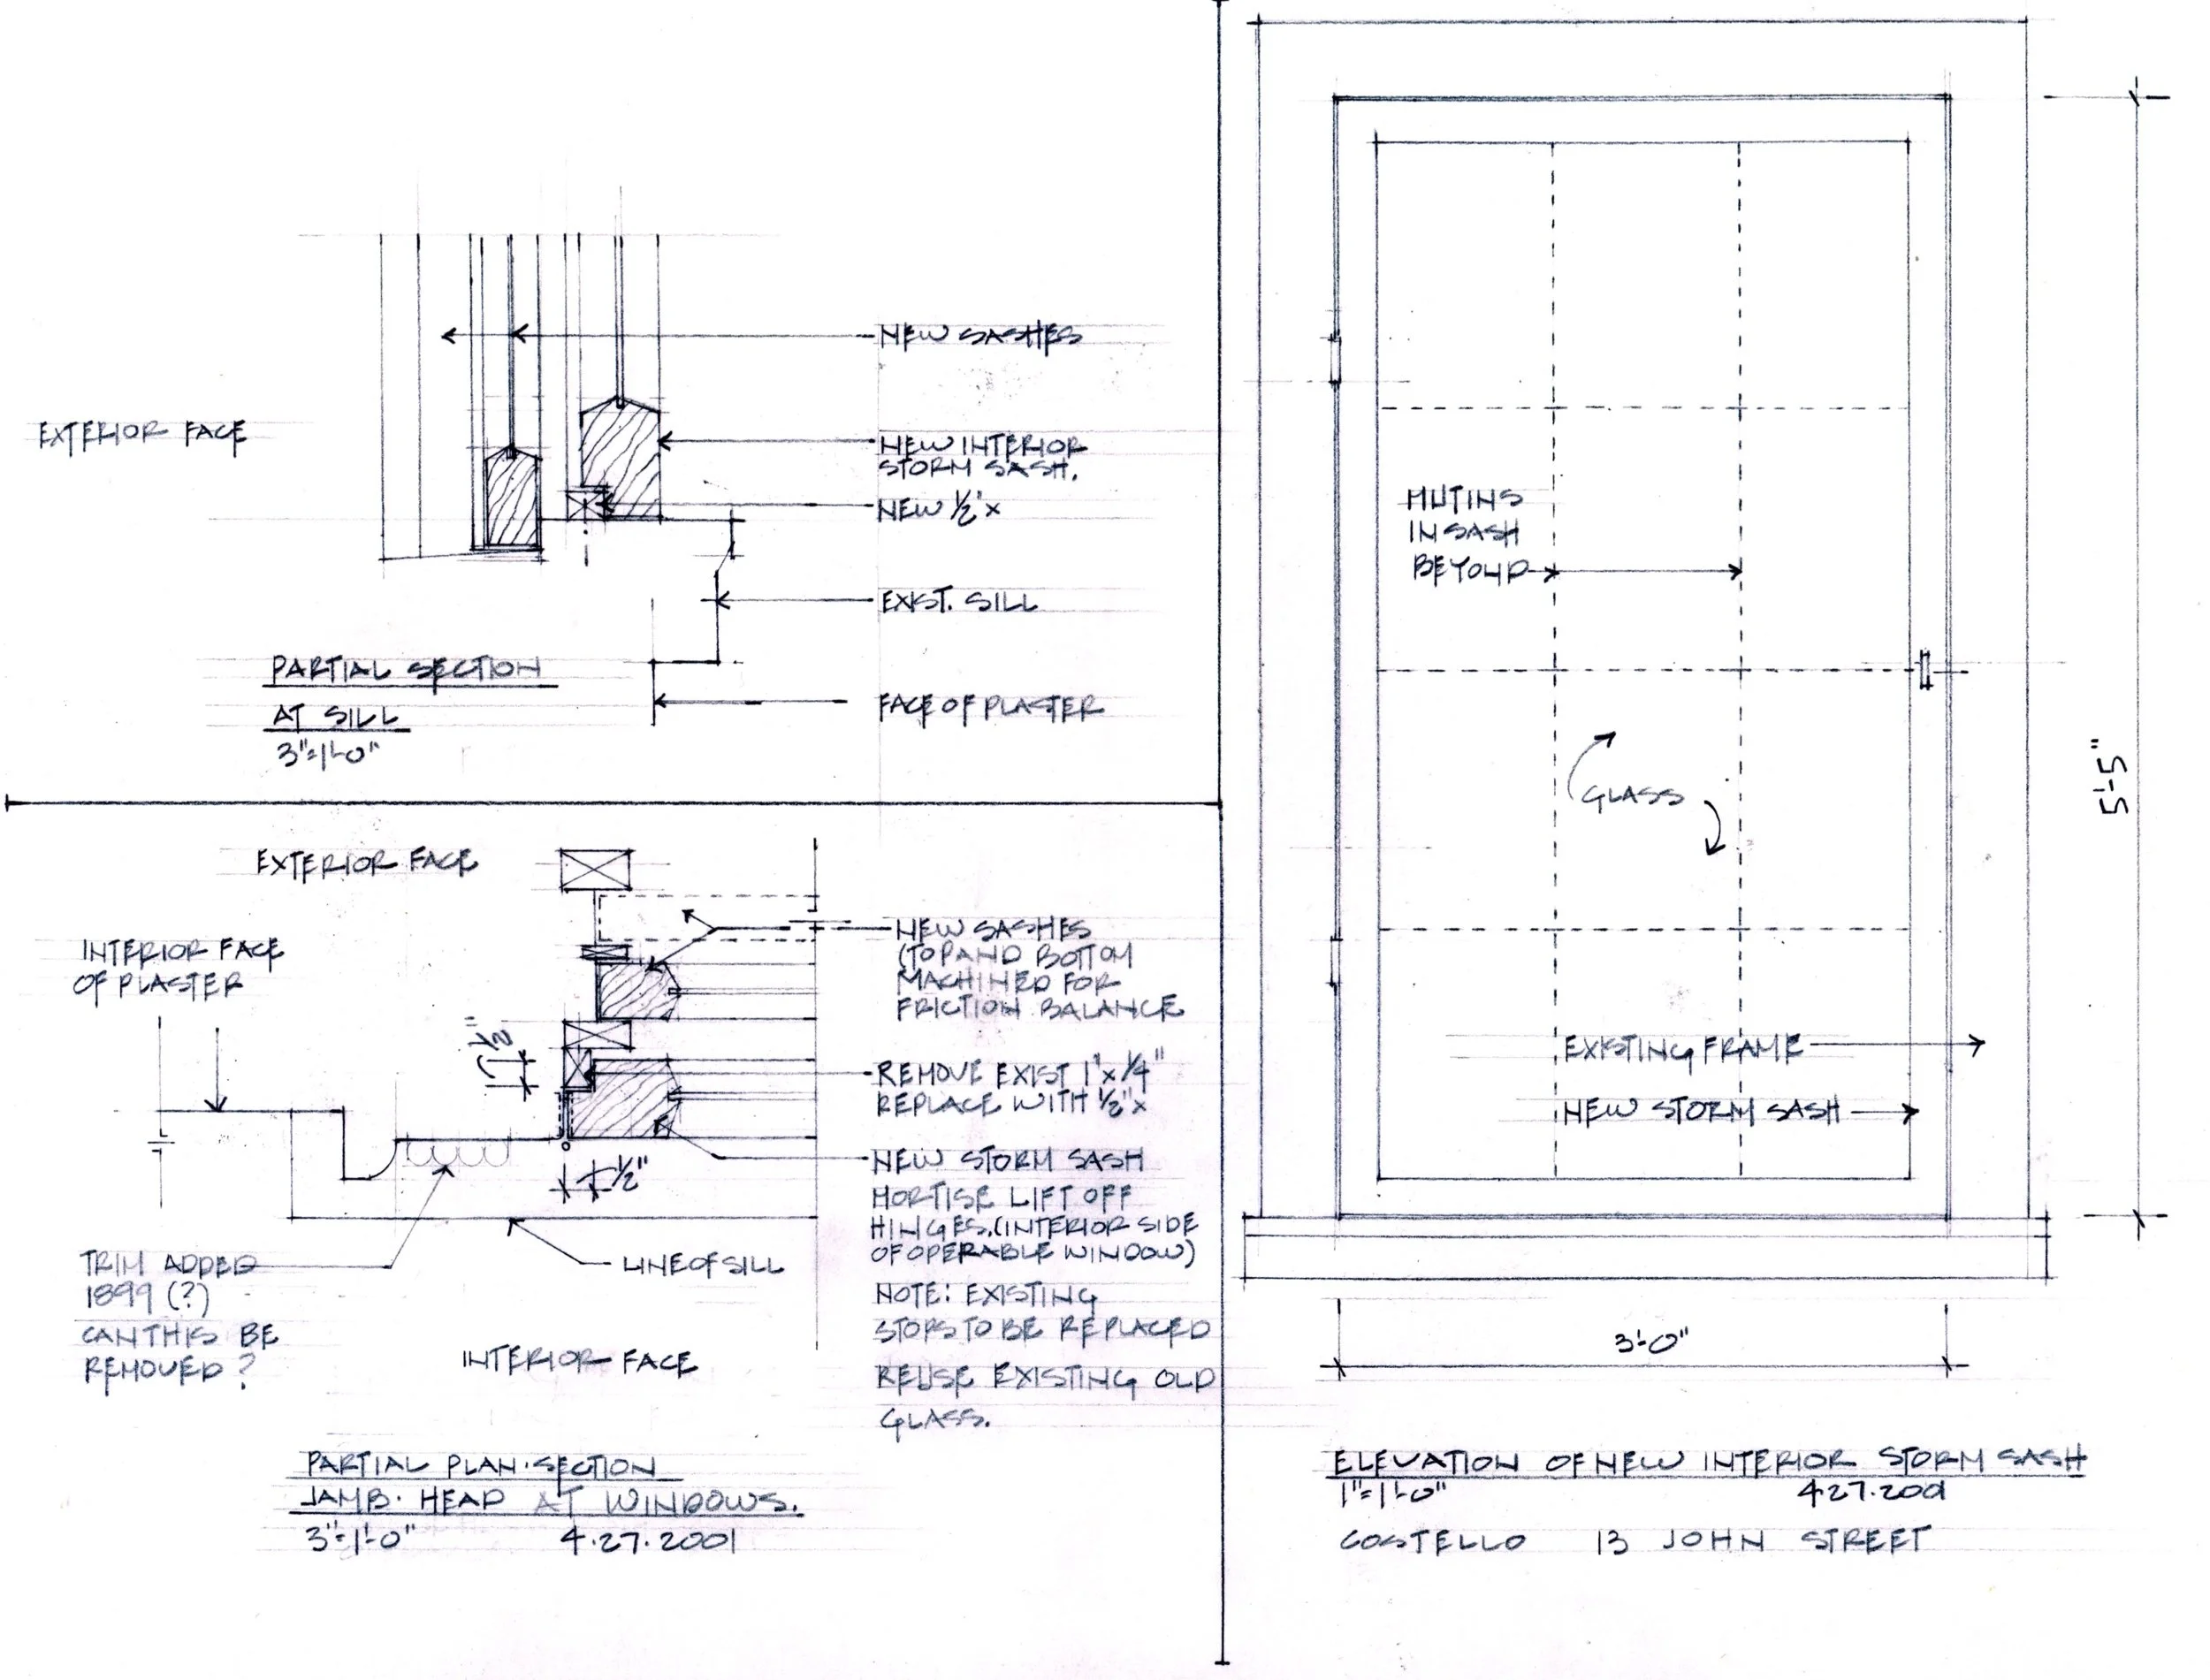 NEW SASHES
EXTERIOR FACE
NEW INTERIOR
STORM SASH.
NEW ½"x
EXIST. SILL
FACE OF PLASTER
PARTIAL SECTION
AT SILL
3"=1'-0"
EXTERIOR FACE
INTERIOR FACE
OF PLASTER
NEW SASHES
(TOP AND BOTTOM
MACHINED FOR
FRICTION BALANCE
½"
REMOVE EXIST 1"x¼"
REPLACE WITH ½"x
NEW STORM SASH
MORTISE LIFT OFF
HINGES.(INTERIOR SIDE
OF OPERABLE WINDOW)
NOTE: EXISTING
STOPS TO BE REPLACED
REUSE EXISTING OLD
GLASS.
½"
LINE OF SILL
TRIM ADDED
1899 (?)
CAN THIS BE
REMOVED?
INTERIOR FACE
PARTIAL PLAN·SECTION
JAMB· HEAD AT WINDOWS.
3"=1'-0" 4·27·2001
MUTINS
IN SASH
BEYOND
GLASS
EXISTING FRAME
NEW STORM SASH
5'-5"
3'-0"
ELEVATION OF NEW INTERIOR STORM SASH
1"=1'-0" 4·27·2001
COSTELLO 13 JOHN STREET